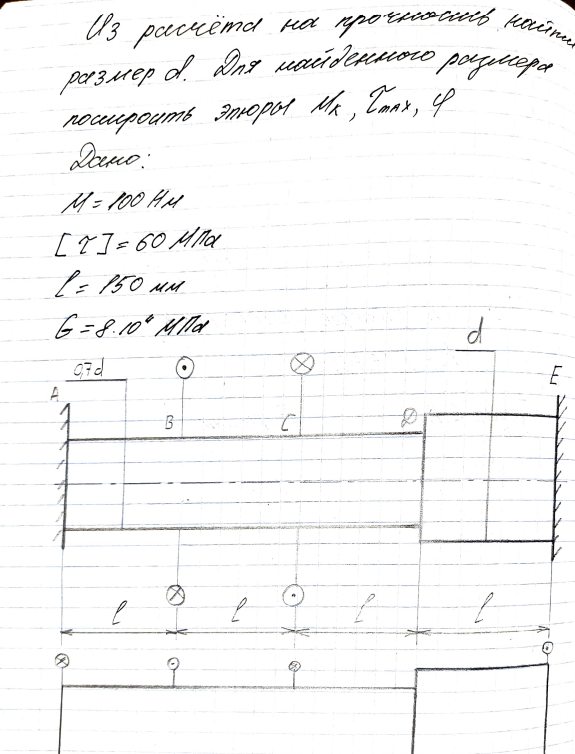 Из расчёта на прочность найти
размер d. Для найденного размера
построить эпюры Mк, τmax, φ
Дано:
M = 100 Нм
[τ] = 60 МПа
l = 150 мм
G = 8·10⁴ МПа
0,7d
d
A
B
C
D
E
l
l
l
l